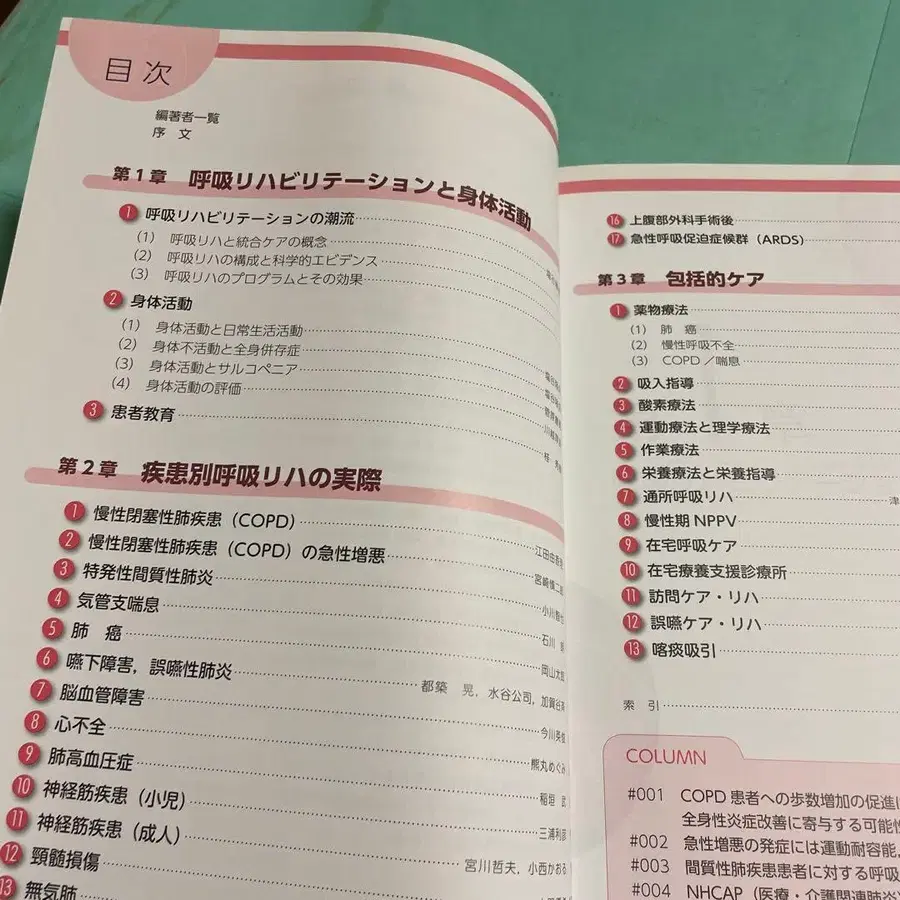 目次
編著者一覧
序 文
第1章 呼吸リハビリテーションと身体活動
1 呼吸リハビリテーションの潮流
(1) 呼吸リハと統合ケアの概念
(2) 呼吸リハの構成と科学的エビデンス
(3) 呼吸リハのプログラムとその効果
2 身体活動
(1) 身体活動と日常生活活動
(2) 身体不活動と全身併存症
(3) 身体活動とサルコペニア
(4) 身体活動の評価
3 患者教育
第2章 疾患別呼吸リハの実際
1 慢性閉塞性肺疾患（COPD）
2 慢性閉塞性肺疾患（COPD）の急性増悪 江田由香
3 特発性間質性肺炎 宮崎慎二郎
4 気管支喘息 小川智也
5 肺 癌 石川
6 嚥下障害，誤嚥性肺炎 岡山太郎
7 脳血管障害 都築 晃，水谷公司，加賀谷
8 心不全 今川英俊
9 肺高血圧症 熊丸めぐみ
10 神経筋疾患（小児） 稲垣 武
11 神経筋疾患（成人） 三浦利彦
12 頸髄損傷 宮川哲夫，小西かおる
13 無気肺
16 上腹部外科手術後
17 急性呼吸促迫症候群（ARDS）
第3章 包括的ケア
1 薬物療法
(1) 肺 癌
(2) 慢性呼吸不全
(3) COPD／喘息
2 吸入指導
3 酸素療法
4 運動療法と理学療法
5 作業療法
6 栄養療法と栄養指導
7 通所呼吸リハ 津
8 慢性期 NPPV
9 在宅呼吸ケア
10 在宅療養支援診療所
11 訪問ケア・リハ
12 誤嚥ケア・リハ
13 喀痰吸引
索 引
COLUMN
#001 COPD 患者への歩数増加の促進
全身性炎症改善に寄与する可能
#002 急性増悪の発症には運動耐容能，
#003 間質性肺疾患患者に対する呼吸
#004 NHCAP（医療・介護関連肺炎）